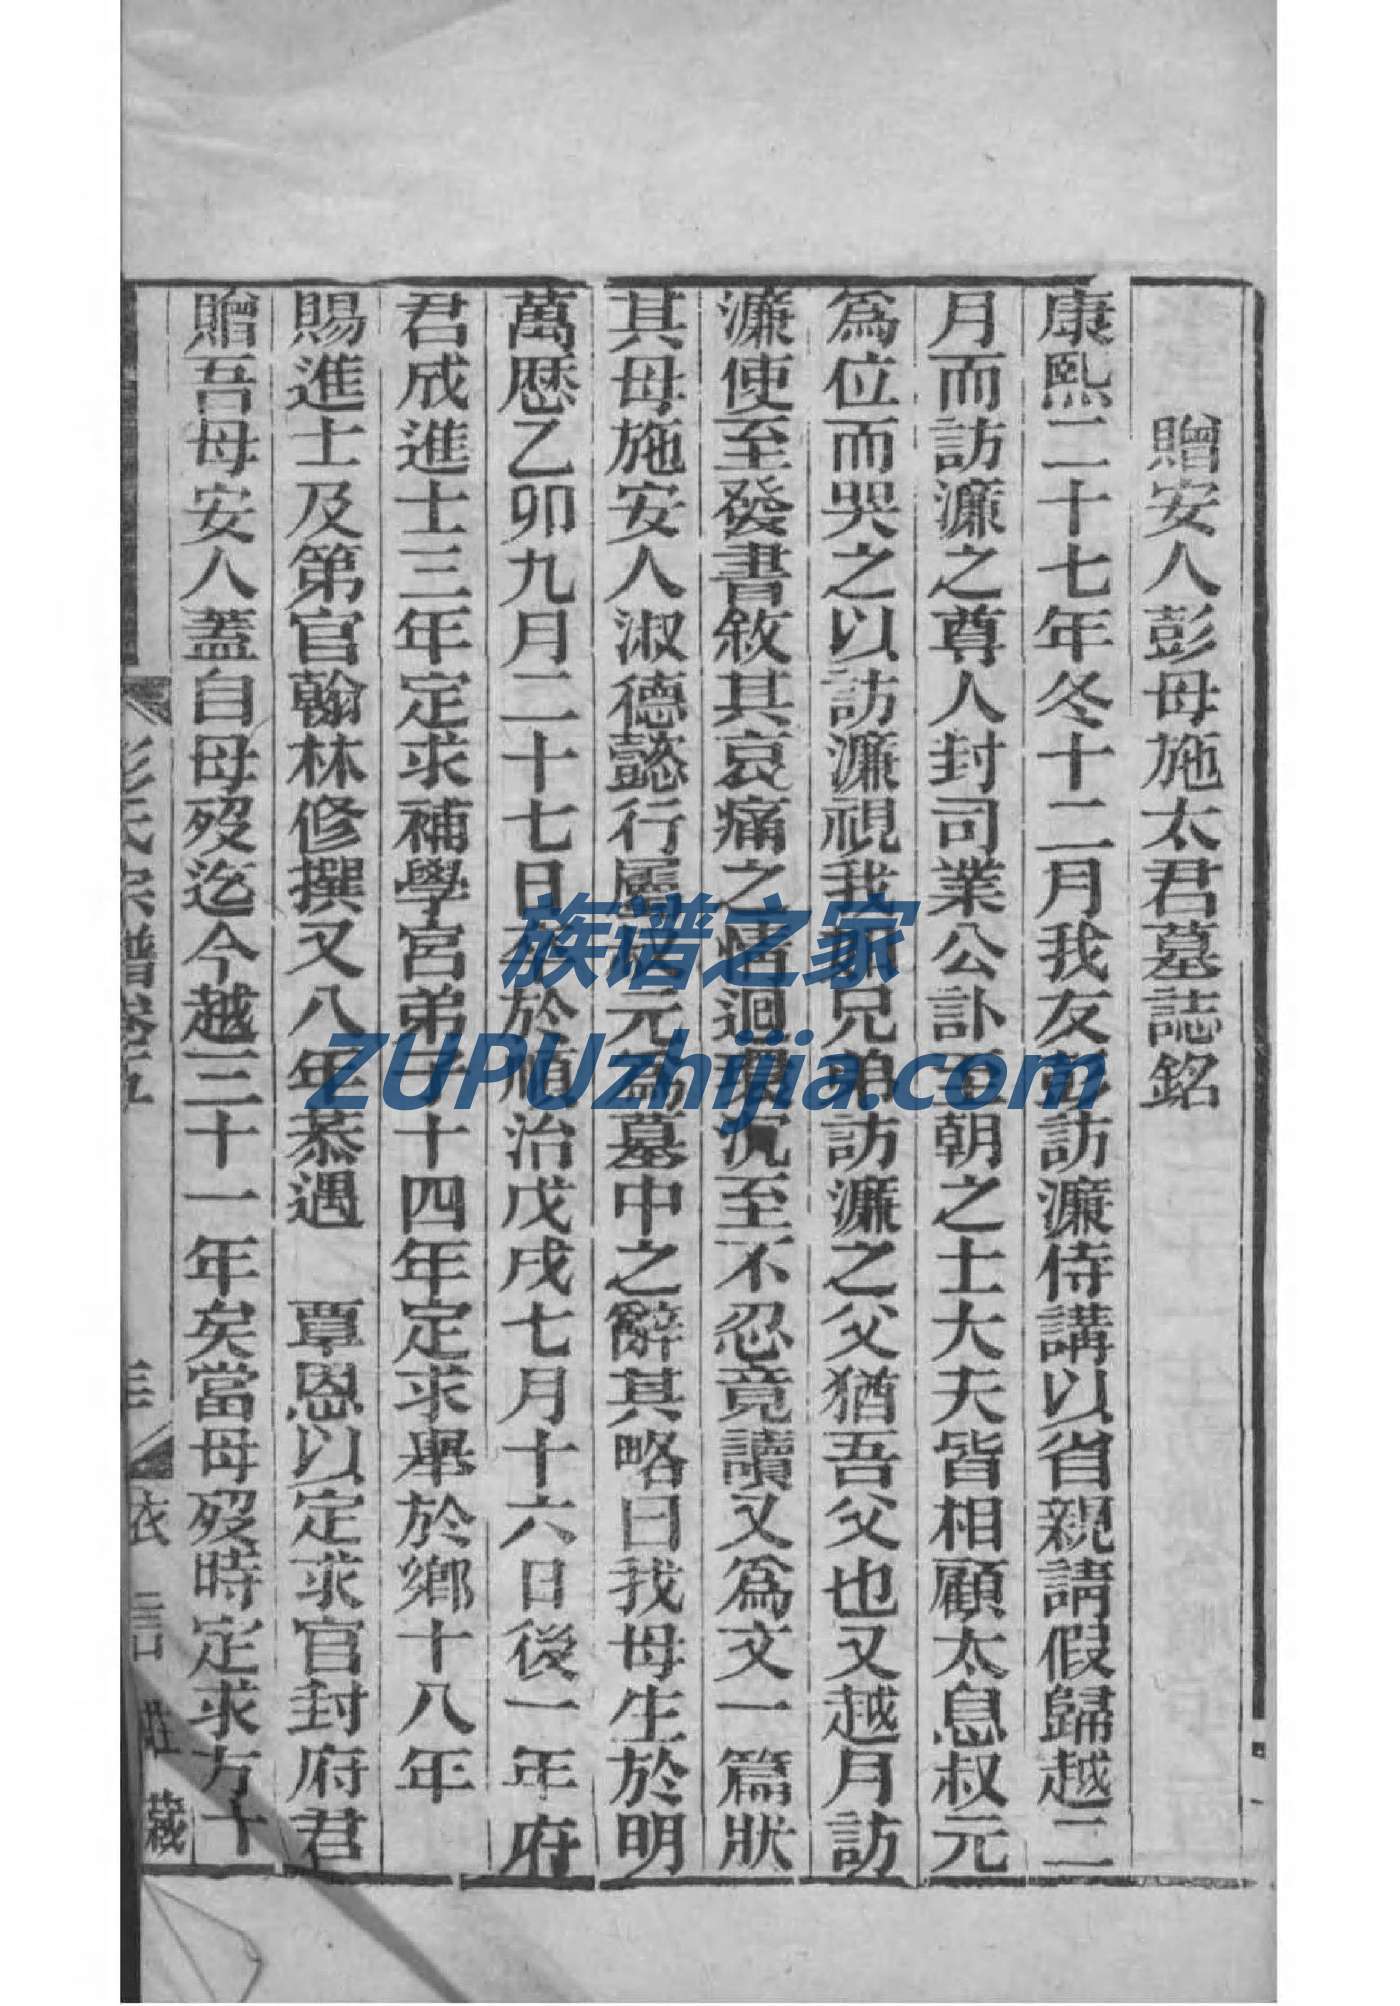 贈安人彭母施太君墓誌銘
康熙二十七年冬十二月我友彭訪濂侍講以省親請假歸越二
月而訪濂之尊人封司業公訃至朝之士大夫皆相顧太息叔元
為位而哭之以訪濂視我猶兄弟訪濂之父猶吾父也又越月訪
濂使至發書敘其哀痛之情迴環沉至不忍竟讀又為文一篇狀
其母施安人淑德懿行屬叔元為墓中之辭其略曰我母生於明
萬歷乙卯九月二十七日卒於順治戊戌七月十六日後一年府
君成進士三年定求補學宮弟子十四年定求舉於鄉十八年
賜進士及第官翰林修撰又八年恭遇　覃恩以定求官封府君
贈吾母安人蓋自母歿迄今越三十一年矣當母歿時定求方十
彭氏宗譜卷五　三　衣言莊藏
族谱之家
ZUPUzhijia.com